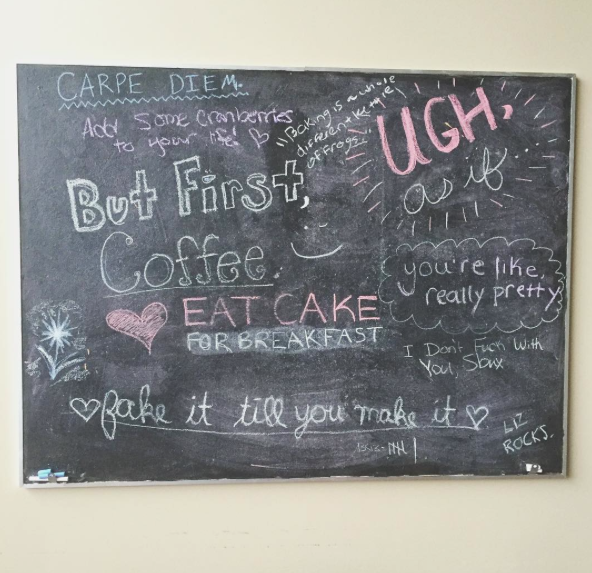 CARPE DIEM.
Add Some Cranberries
to your life!
"Baking is a whole
different kettle
of frogs...
UGH,
as if...
But First,
Coffee.
you're like,
really pretty
EAT CAKE
FOR BREAKFAST
I Don't Fuck With
You, Sbux
fake it till you make it
LIZ
ROCKS.